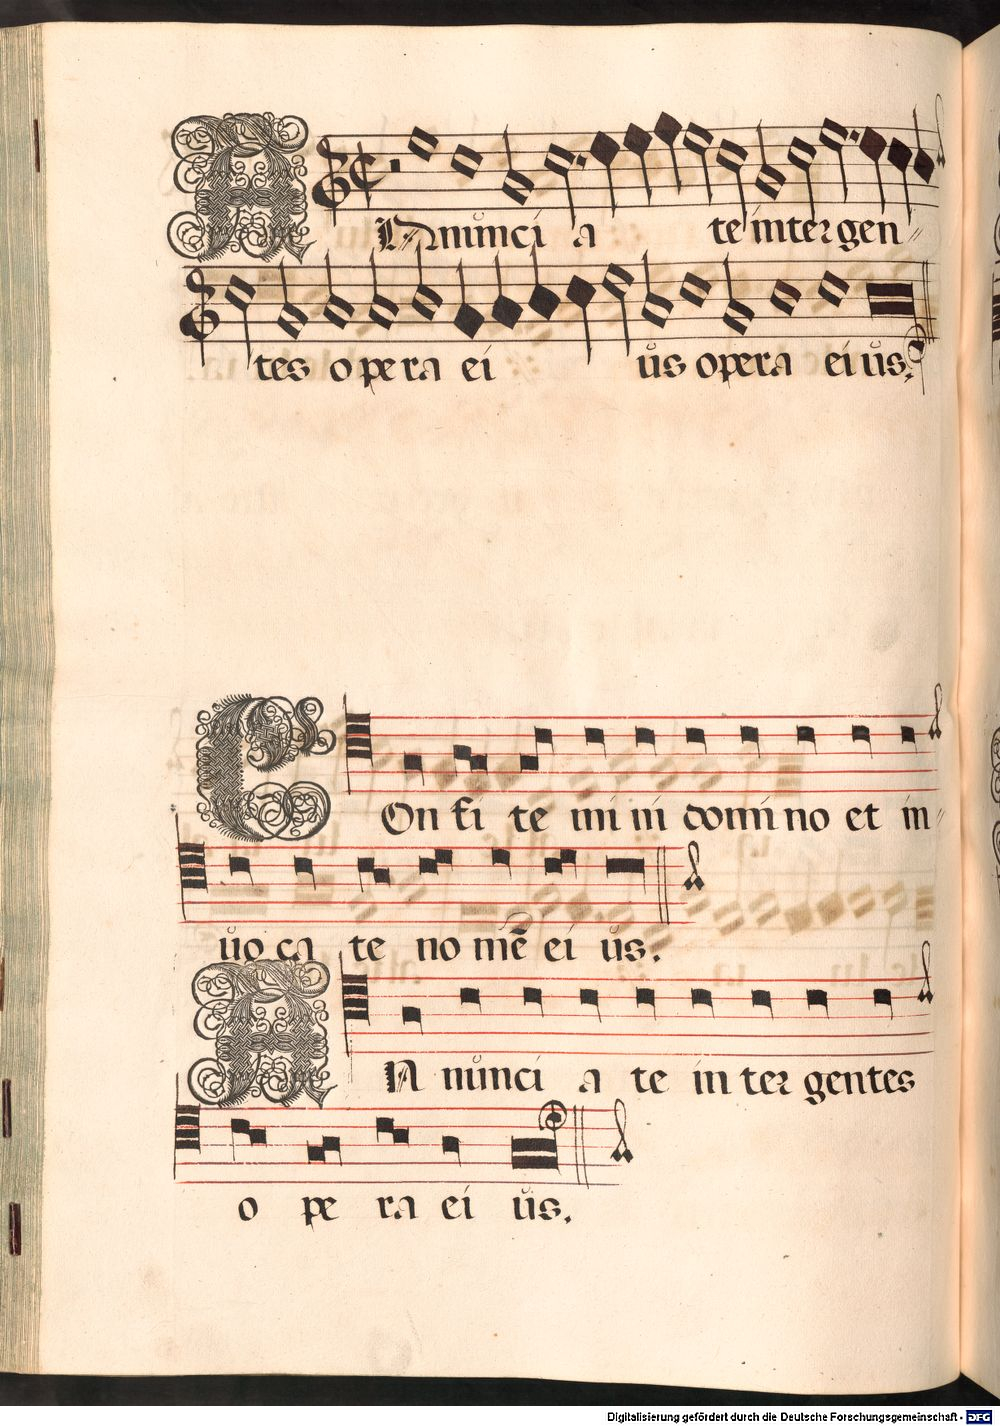 AN nŭnci a te inter gen
tes o pe ra ei ŭs opera ei ŭs.
COn fi te mi ni domi no et in
ŭo ca te no mē ei ŭs.
AN nŭnci a te in ter gentes
o pe ra ei ŭs.
Digitalisierung gefördert durch die Deutsche Forschungsgemeinschaft - DFG